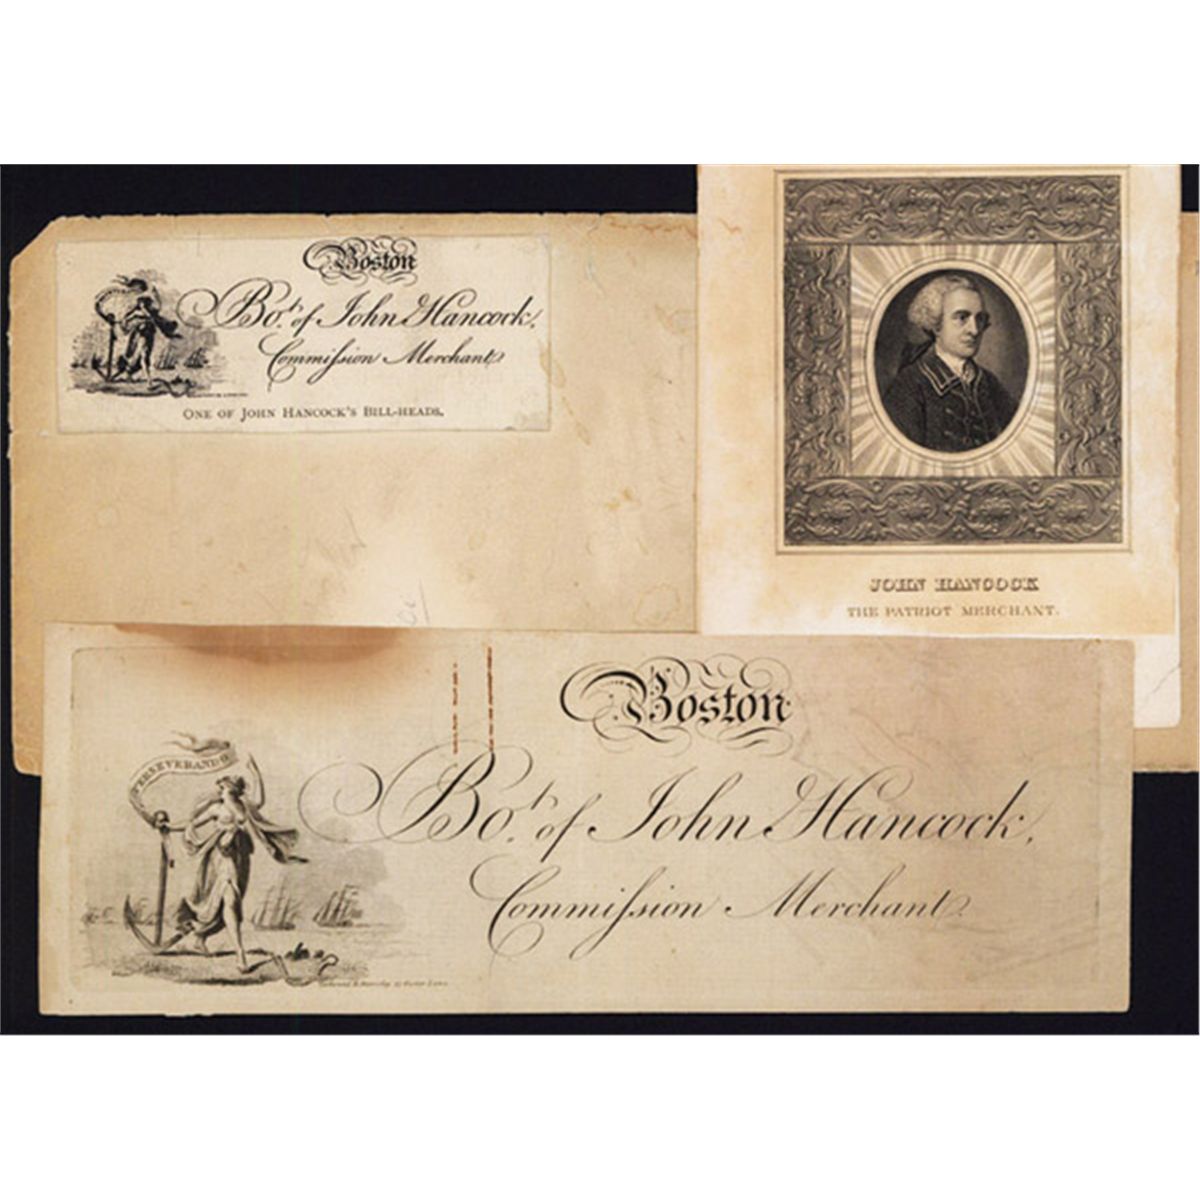 Boston
Bot. of John Hancock,
Commiſsion Merchant
ONE OF JOHN HANCOCK'S BILL-HEADS.
JOHN HANCOCK
THE PATRIOT MERCHANT.
Boston
PERSEVERANDO
Bot. of John Hancock,
Commiſsion Merchant.